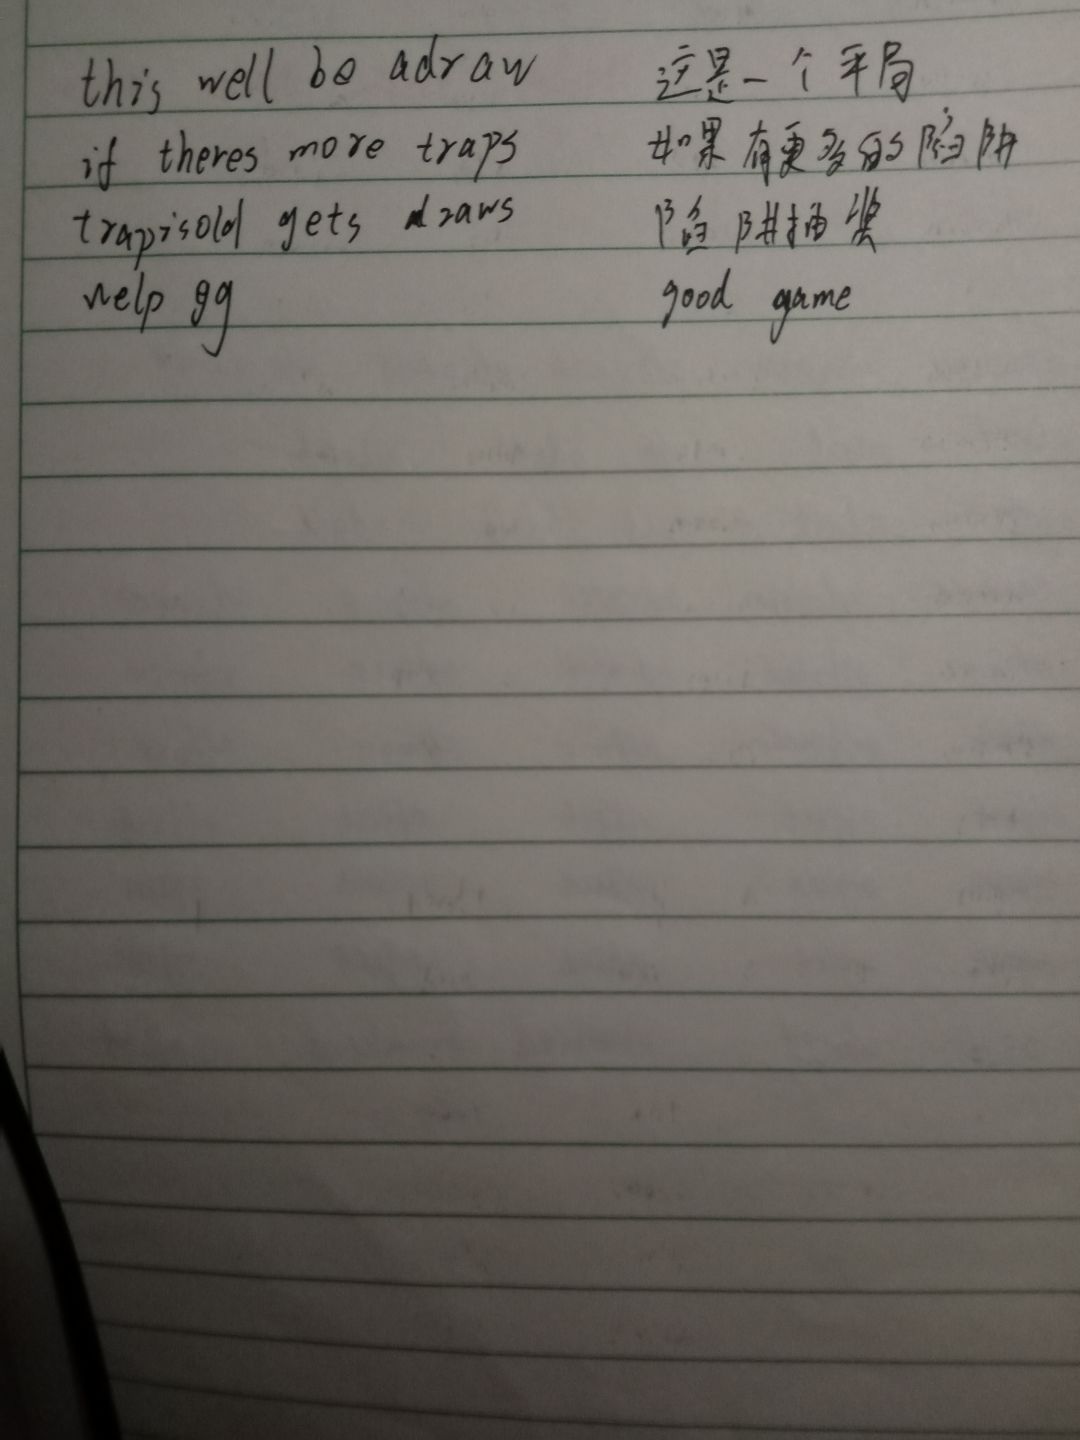 this well be adraw 这是一个平局
if theres more traps 如果有更多的陷阱
trapisold gets draws 陷阱抽奖
welp gg good game